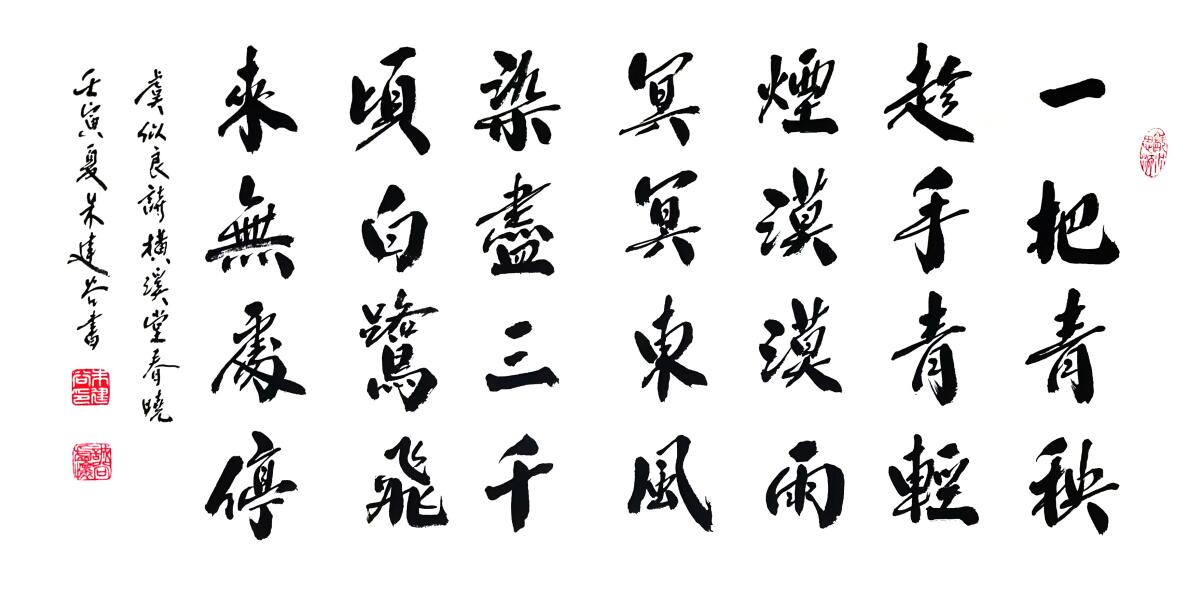 一把青秧
趁手青輕
煙漠漠雨
冥冥東風
染盡三千
頃白鷺飛
來無處停
虞似良詩橫溪堂春曉
壬寅夏朱建谷書
朱建谷印